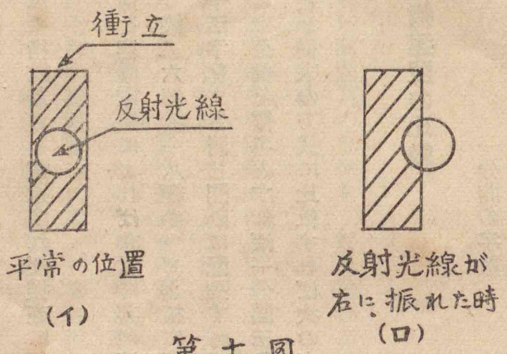 衝立
反射光線
平常の位置
(イ)
反射光線が
右に、振れた時
(ロ)
第十図